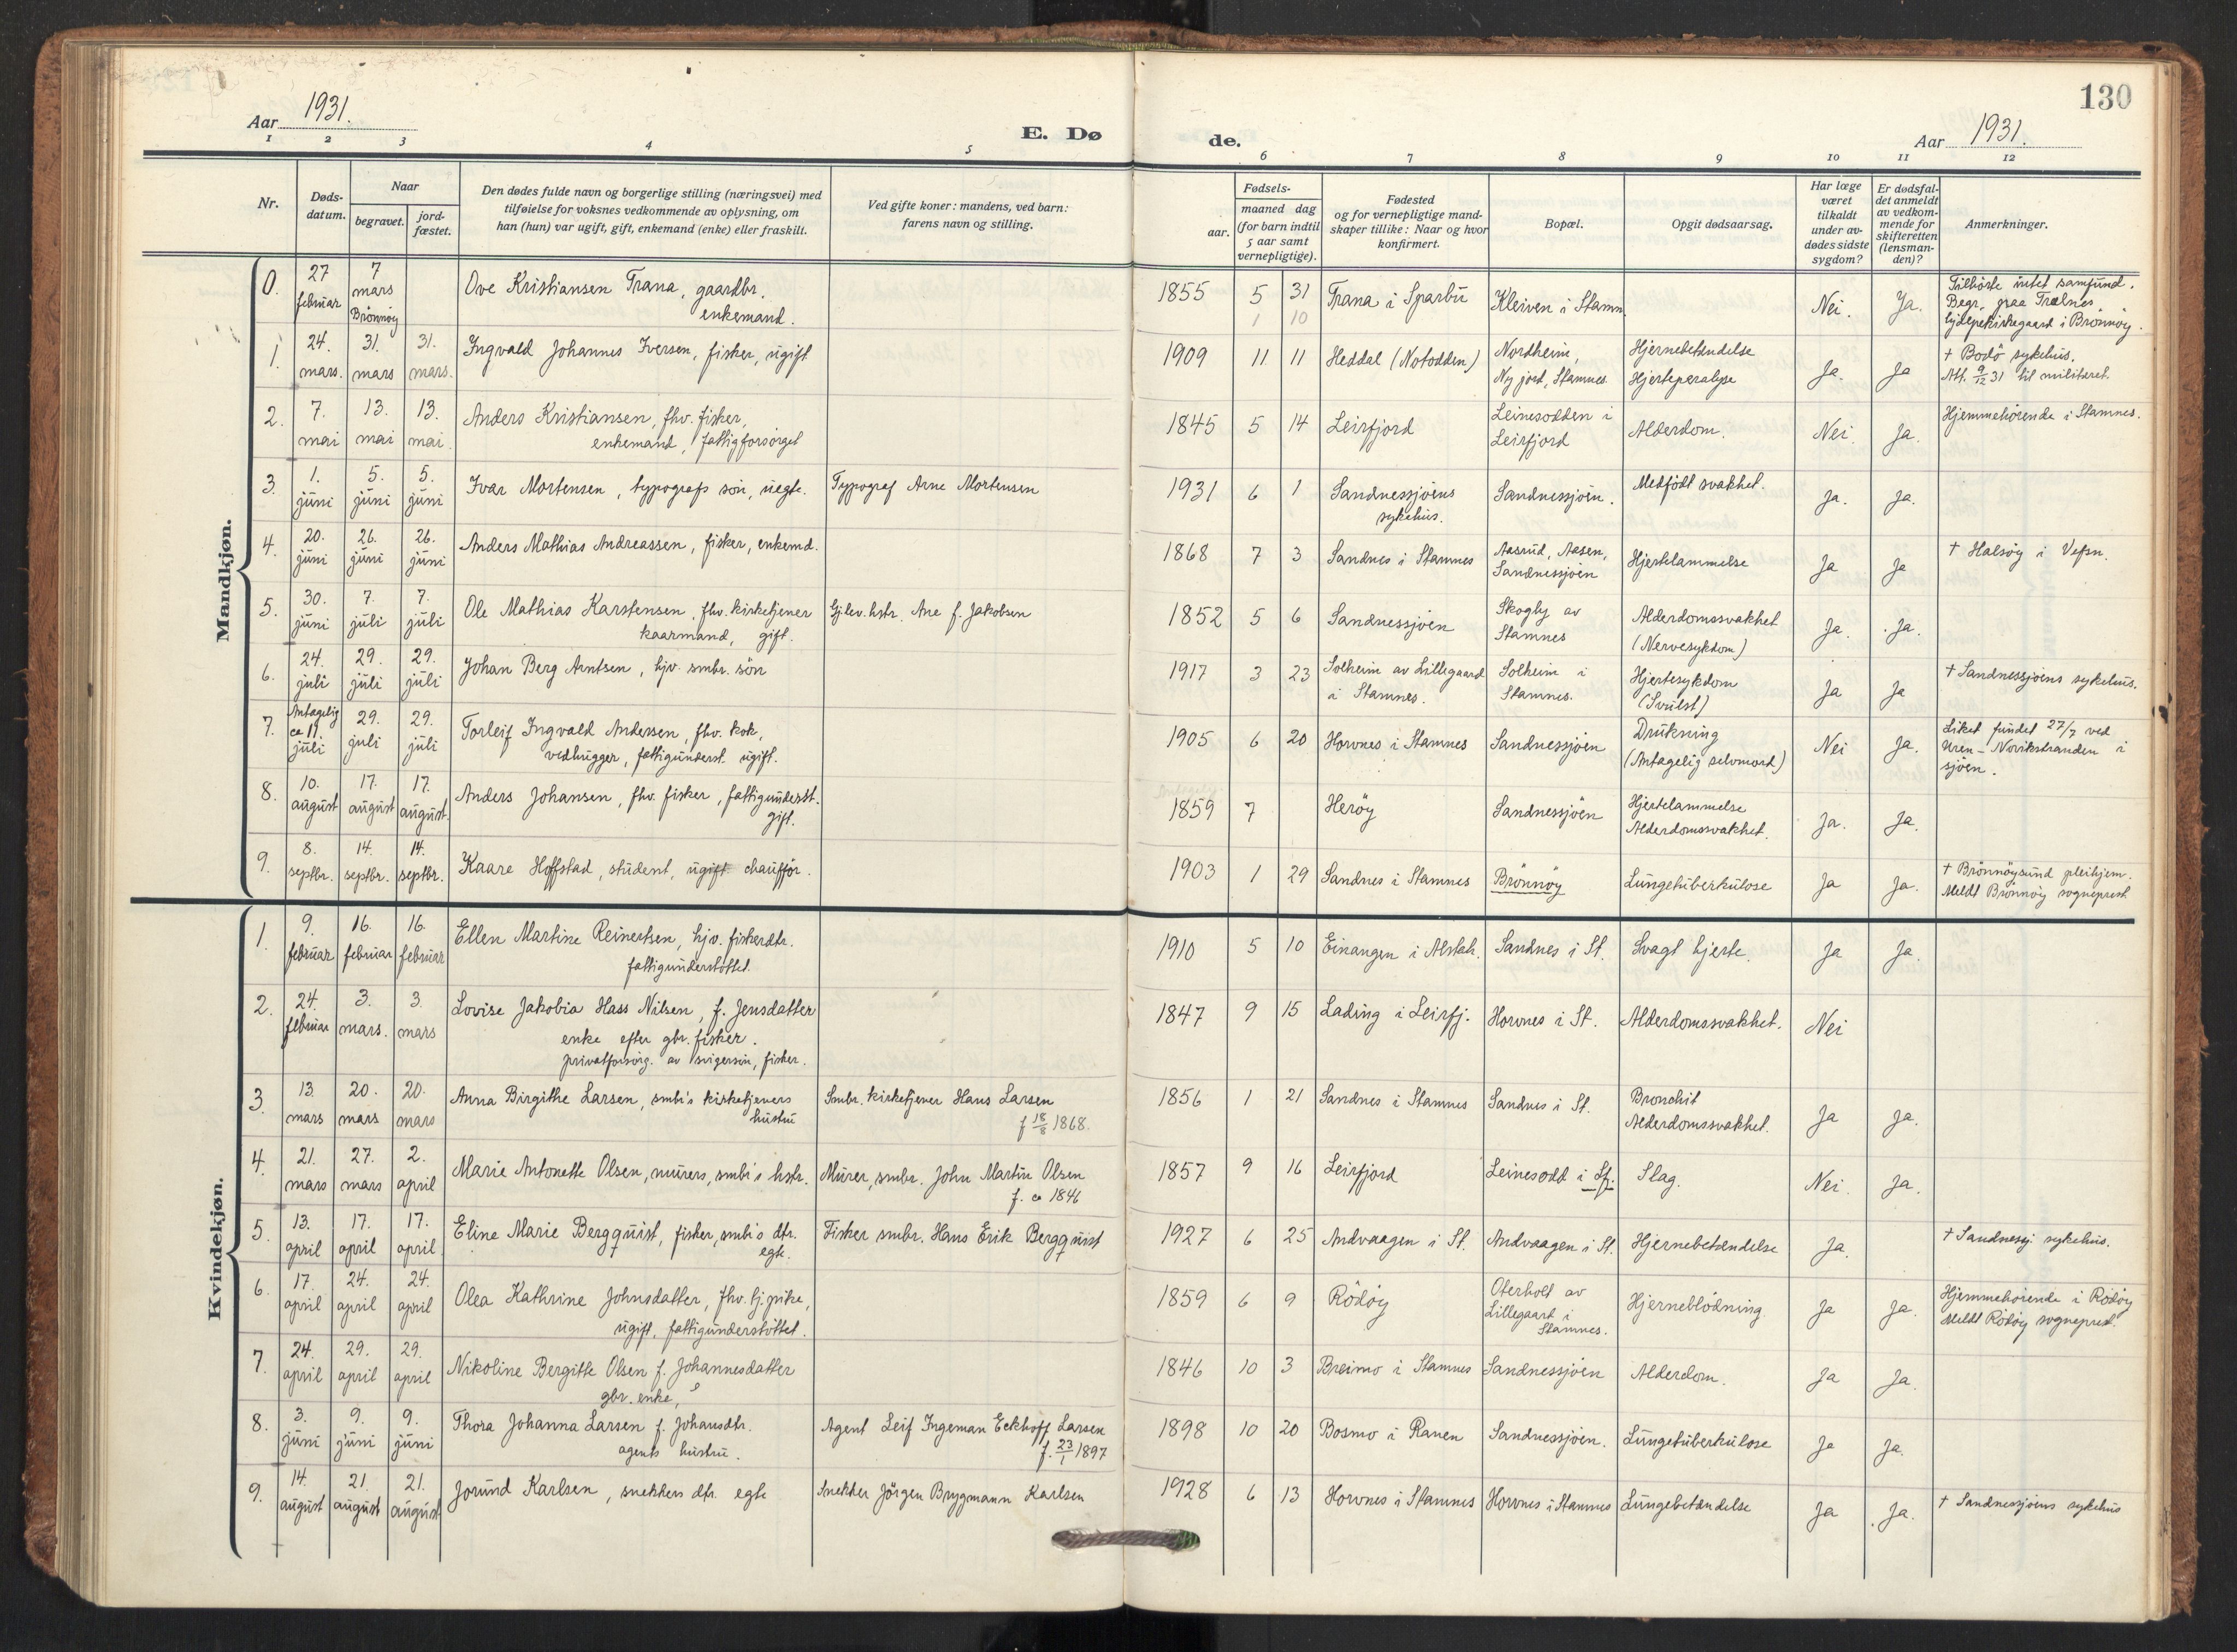 130
Aar 1931.
E. Døde.
Aar 1931.
1 2 3 4 5 6 7 8 9 10 11 12
Nr.
Døds-
datum.
Naar
begravet.
jord-
fæstet.
Den dødes fulde navn og borgerlige stilling (næringsvei) med
tilføielse for voksnes vedkommende av oplysning, om
han (hun) var ugift, gift, enkemand (enke) eller fraskilt.
Ved gifte koner: mandens, ved barn:
farens navn og stilling.
Fødsels-
aar.
maaned dag
(for barn indtil
5 aar samt
vernepligtige).
Fødested
og for vernepligtige mand-
skaper tillike: Naar og hvor
konfirmert.
Bopæl.
Opgit dødsaarsag.
Har læge
været
tilkaldt
under av-
dødes sidste
sygdom?
Er dødsfal-
det anmeldt
av vedkom-
mende for
skifteretten
(lensman-
den)?
Anmerkninger.
Mandkjøn.
0. 27 februar 7 mars Brönnöy
Ove Kristiansen Trana, gaardbr.
enkemand.
1855 5 31 Trana i Sparbu Kleiven i Stamn. Nei. Ja.
1 10
Tilhörte intet samfund.
Begr. paa Trælnes
hjelpekirkegaard i Brönnöy.
1. 24. mars. 31. mars 31. mars.
Ingvald Johannes Iversen, fisker, ugift
1909 11 11 Heddal (Notodden)
Nordheim,
Ny jord, Stamnes.
Hjernebetændelse
Hjerteparalyse
Ja. Ja
+ Bodö sykehus.
Att. 9/12 31 til militæret.
2. 7. mai 13. mai 13. mai.
Anders Kristiansen, fhv. fisker,
enkemand, fattigforsörget
1845 5 14 Leirfjord
Leinesodden i
Leirfjord
Alderdom. Nei. Ja.
Hjemmehörende i Stamnes.
3. 1. juni 5. juni 5. juni
Ivar Mortensen, typografs sön, uegte. Typograf Arne Mortensen
1931 6 1 Sandnessjöens
sykehus.
Sandnessjöen. Medfödt svakhet. Ja. Ja.
4. 20. juni 26. juni 26. juni
Anders Mathias Andreassen, fisker, enkemd.
1868 7 3 Sandnes i Stamnes
Aasrud, Aasen,
Sandnessjöen
Hjertelammelse Ja Ja + Halsöy i Vefsn.
5. 30. juni 7. juli 7. juli
Ole Mathias Karstensen, fhv. kirketjener
kaarmand, gift.
Gjlev. hstr. Ane f. Jakobsen
1852 5 6 Sandnessjöen
Skogly av
Stamnes
Alderdomssvakhet
(Nervesykdom)
Ja. Ja.
6. 24. juli 29. juli 29. juli
Johan Berg Arntsen, hjv. smbr. sön
1917 3 23 Solheim av Lillegaard
i Stamnes.
Solheim i
Stamnes.
Hjertesykdom
(Svulst)
Ja Ja + Sandnessjöens sykehus.
7. Antagelig ca 11. juli 29. juli 29. juli
Torleif Ingvald Andersen, fhv. kok,
vedhugger, fattigunderst. ugift.
1905 6 20 Horvnes i Stamnes Sandnessjöen
Drukning
(Antagelig selvmord)
Nei Ja.
Liket fundet 27/7 ved
Uren - Novikstranden i
sjöen.
8. 10. august 17. august 17. august.
Anders Johansen, fhv. fisker, fattigunderstt.
gift.
Antagely
1859 7 Heröy Sandnessjöen
Hjertelammelse
Alderdomssvakhet.
Ja. Ja.
9. 8. septbr. 14. septbr. 14. septbr.
Kaare Hoffstad, student, ugift chafför.
1903 1 29 Sandnes i Stamnes Brönnöy Lungetuberkulose Ja Ja.
+ Brönnöysund pleihjem.
Meldt Brönnöy sogneprest
Kvindekjøn.
1. 9. februar 16. februar 16. februar
Ellen Martine Reinertsen, hjv. fiskerdtr.
fattigunderstöttet.
1910 5 10 Einangen i Alstah. Sandnes i St. Svagt hjerte. Ja Ja.
2. 24. februar 3. mars. 3. mars
Lovise Jakobia Hass Nilsen, f. Jensdatter
enke efter gbr. fisker.
privatforsörg. av svigersön, fisker.
1847 9 15 Lading i Leirfj. Horvnes i St. Alderdomssvakhet. Nei
3. 13. mars 20. mars 20. mars
Anna Birgithe Larsen, smbr's kirketjeners
hustru
Smbr. kirketjener Hans Larsen
f 18/8 1868.
1856 1 21 Sandnes i Stamnes Sandnes i St.
Bronchit
Alderdomssvakhet.
Ja Ja.
4. 21. mars 27. mars 2. april
Marie Antonette Olsen, murers, smbr's hstr.
Murer, smbr. John Martin Olsen
f. ca 1846
1857 9 16 Leirfjord Leinesodd i Lfj. Slag. Nei. Ja.
5. 13. april 17. april 17. april
Eline Marie Bergquist, fisker, smbr's dtr.
egte.
Fisker smbr. Hans Erik Bergquist
1927 6 25 Andvaagen i St. Andvaagen i St. Hjernebetændelse Ja. + Sandnessj sykehus.
6. 17. april 24. april 24. april
Olea Kathrine Johnsdatter, fhv. tj.pike,
ugift, fattigunderstöttet.
1859 6 9 Rödöy
Oterholt av
Lillegaard i
Stamnes.
Hjerneblödning. Ja Ja.
Hjemmehörende i Rödöy
Meldt Rödöy sogneprest.
7. 24. april 29. april 29. april
Nikoline Bergitte Olsen f. Johannesdatter
gbr. enke,
1846 10 3 Breimo i Stamnes Sandnessjöen Alderdom. Ja Ja.
8. 3. juni 9. juni 9. juni
Thora Johanna Larsen f. Johansdtr.
agents hustru.
Agent Leif Ingeman Eckhoff Larsen
f. 23/1 1897
1898 10 20 Bosmo i Ranen Sandnessjöen. Lungetuberkulose Ja Ja.
9. 14. august 21. august 21. august
Jorund Karlsen, snekkers dtr. egte
Snekker Jörgen Brygmann Karlsen
1928 6 13 Horvnes i Stamnes Horvnes i Stamnes Lungebetændelse Ja Ja. + Sandnessjöens sykehus